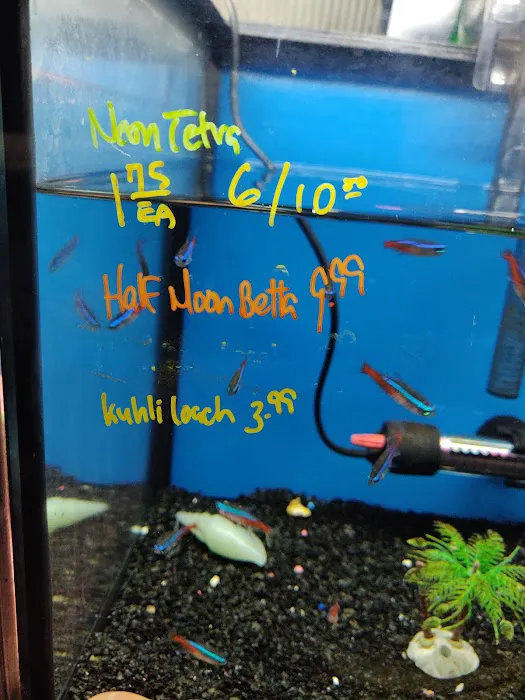 Neon Tetra
1 75 EA 6/10 00
Half Moon Betta 9.99
kuhli loach 3.99